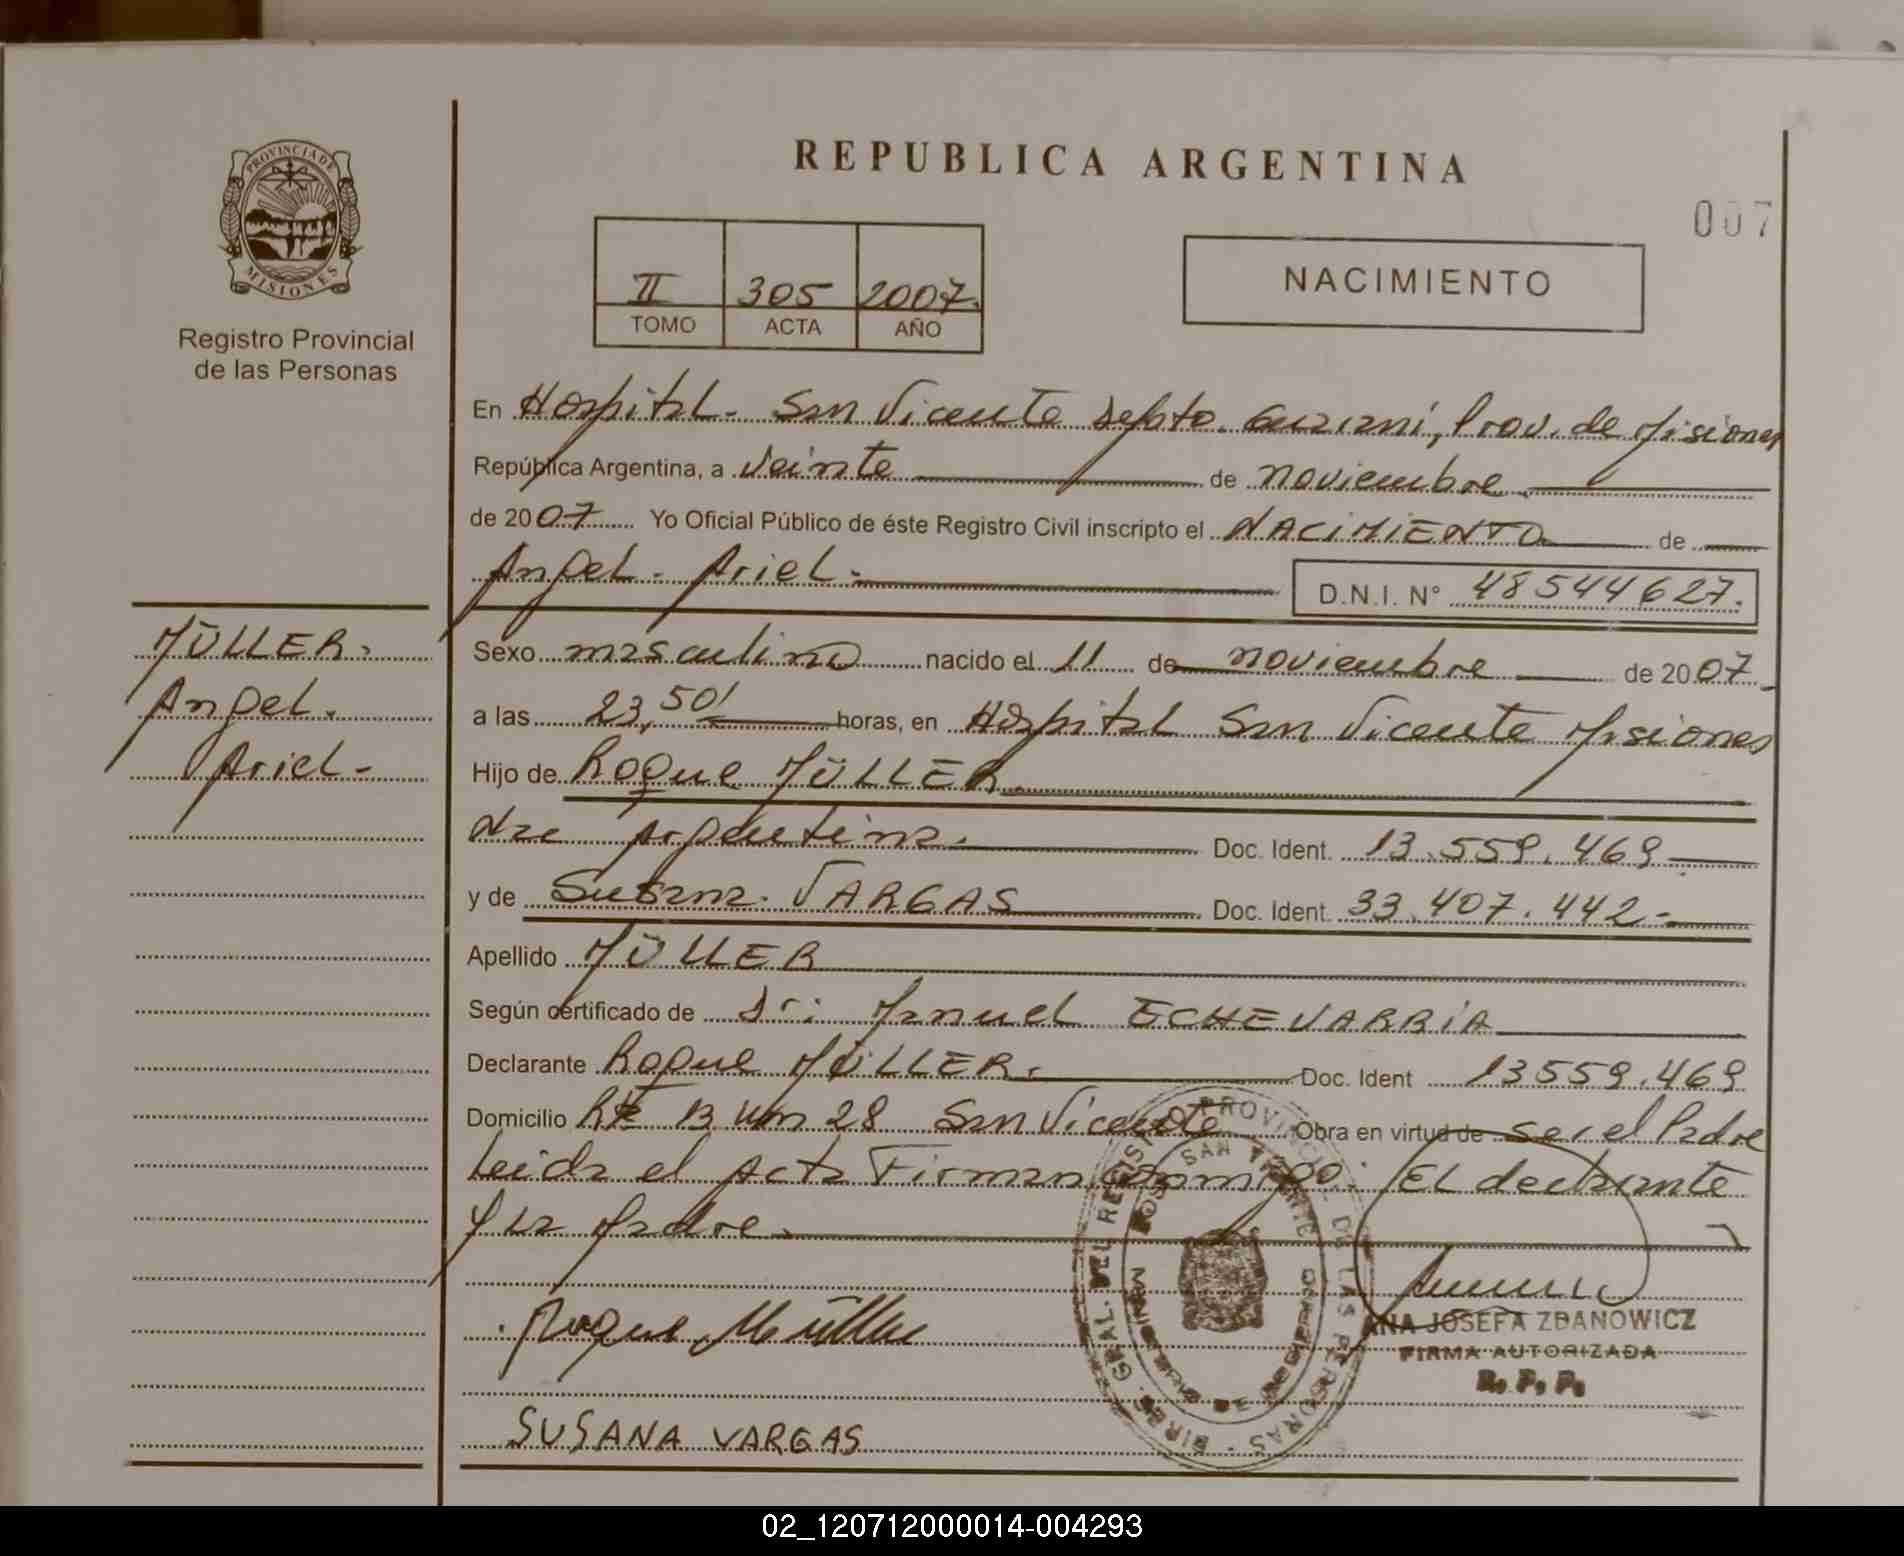 REPUBLICA ARGENTINA
007
PROVINCIA DE
MISIONES
Registro Provincial
de las Personas
II 305 2007.
TOMO ACTA AÑO
NACIMIENTO
En Hospital - San Vicente Depto. Guaraní, Prov. de Misiones
República Argentina, a Veinte de noviembre
de 2007 Yo Oficial Público de éste Registro Civil inscripto el NACIMIENTO de
Angel - Ariel - D.N.I. N° 48544627.
MÜLLER.
Angel.
Ariel -
Sexo masculino nacido el 11 de noviembre de 2007
a las 23,50' horas, en Hospital San Vicente Misiones
Hijo de Roque MÜLLER
Nac Argentina. Doc. Ident. 13.559.469
y de Susana VARGAS Doc. Ident. 33.407.442-
Apellido MÜLLER
Según certificado de Dr: Manuel ECHEVARRIA
Declarante Roque MÜLLER. Doc. Ident 13559.469
Domicilio Rta 13 Km 28 San Vicente Obra en virtud de ser el Padre
Leida el Acta Firman Conmigo: El declarante
y La Madre.
Roque Müller
ANA JOSEFA ZDANOWICZ
FIRMA AUTORIZADA
R. P. P.
SUSANA VARGAS
DIREC. GRAL. DEL REGISTRO PROVINCIAL DE LAS PERSONAS
SAN VICENTE
02_120712000014-004293